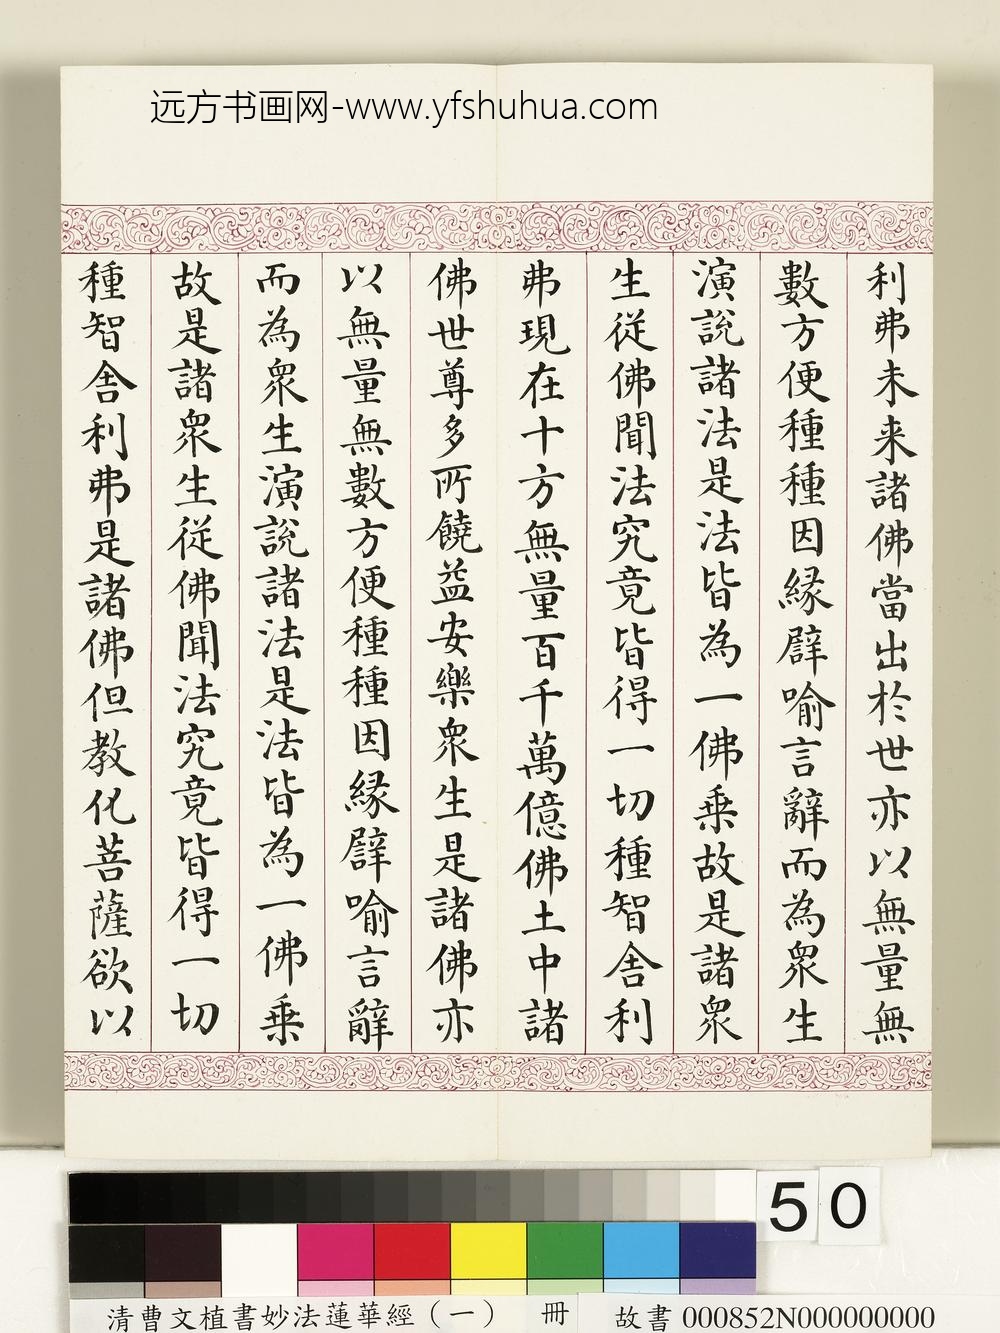 远方书画网-www.yfshuhua.com
利弗未来諸佛當出於世亦以無量無
數方便種種因縁辟喻言辭而為眾生
演說諸法是法皆為一佛乗故是諸眾
生從佛聞法究竟皆得一切種智舍利
弗現在十方無量百千萬億佛土中諸
佛世尊多所饒益安樂眾生是諸佛亦
以無量無數方便種種因縁辟喻言辭
而為眾生演說諸法是法皆為一佛乗
故是諸眾生從佛聞法究竟皆得一切
種智舍利弗是諸佛但教化菩薩欲以
50
清曹文植書妙法蓮華經（一） 冊 故書 000852N000000000